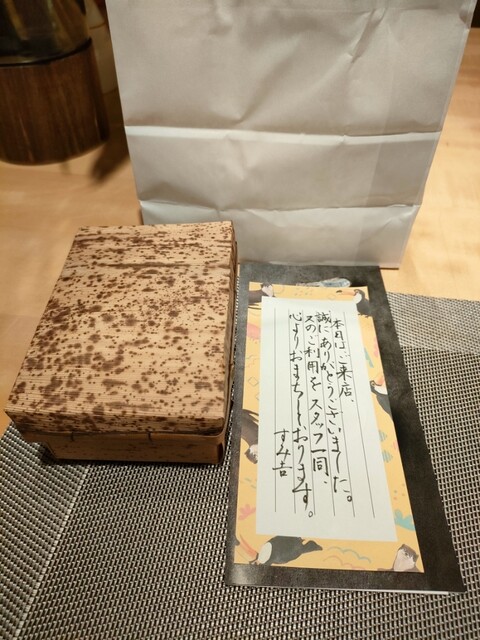 本日はご来店、
誠にありがとうございました。
又のご利用をスタッフ一同、
心よりおまちしております。
すみ吉